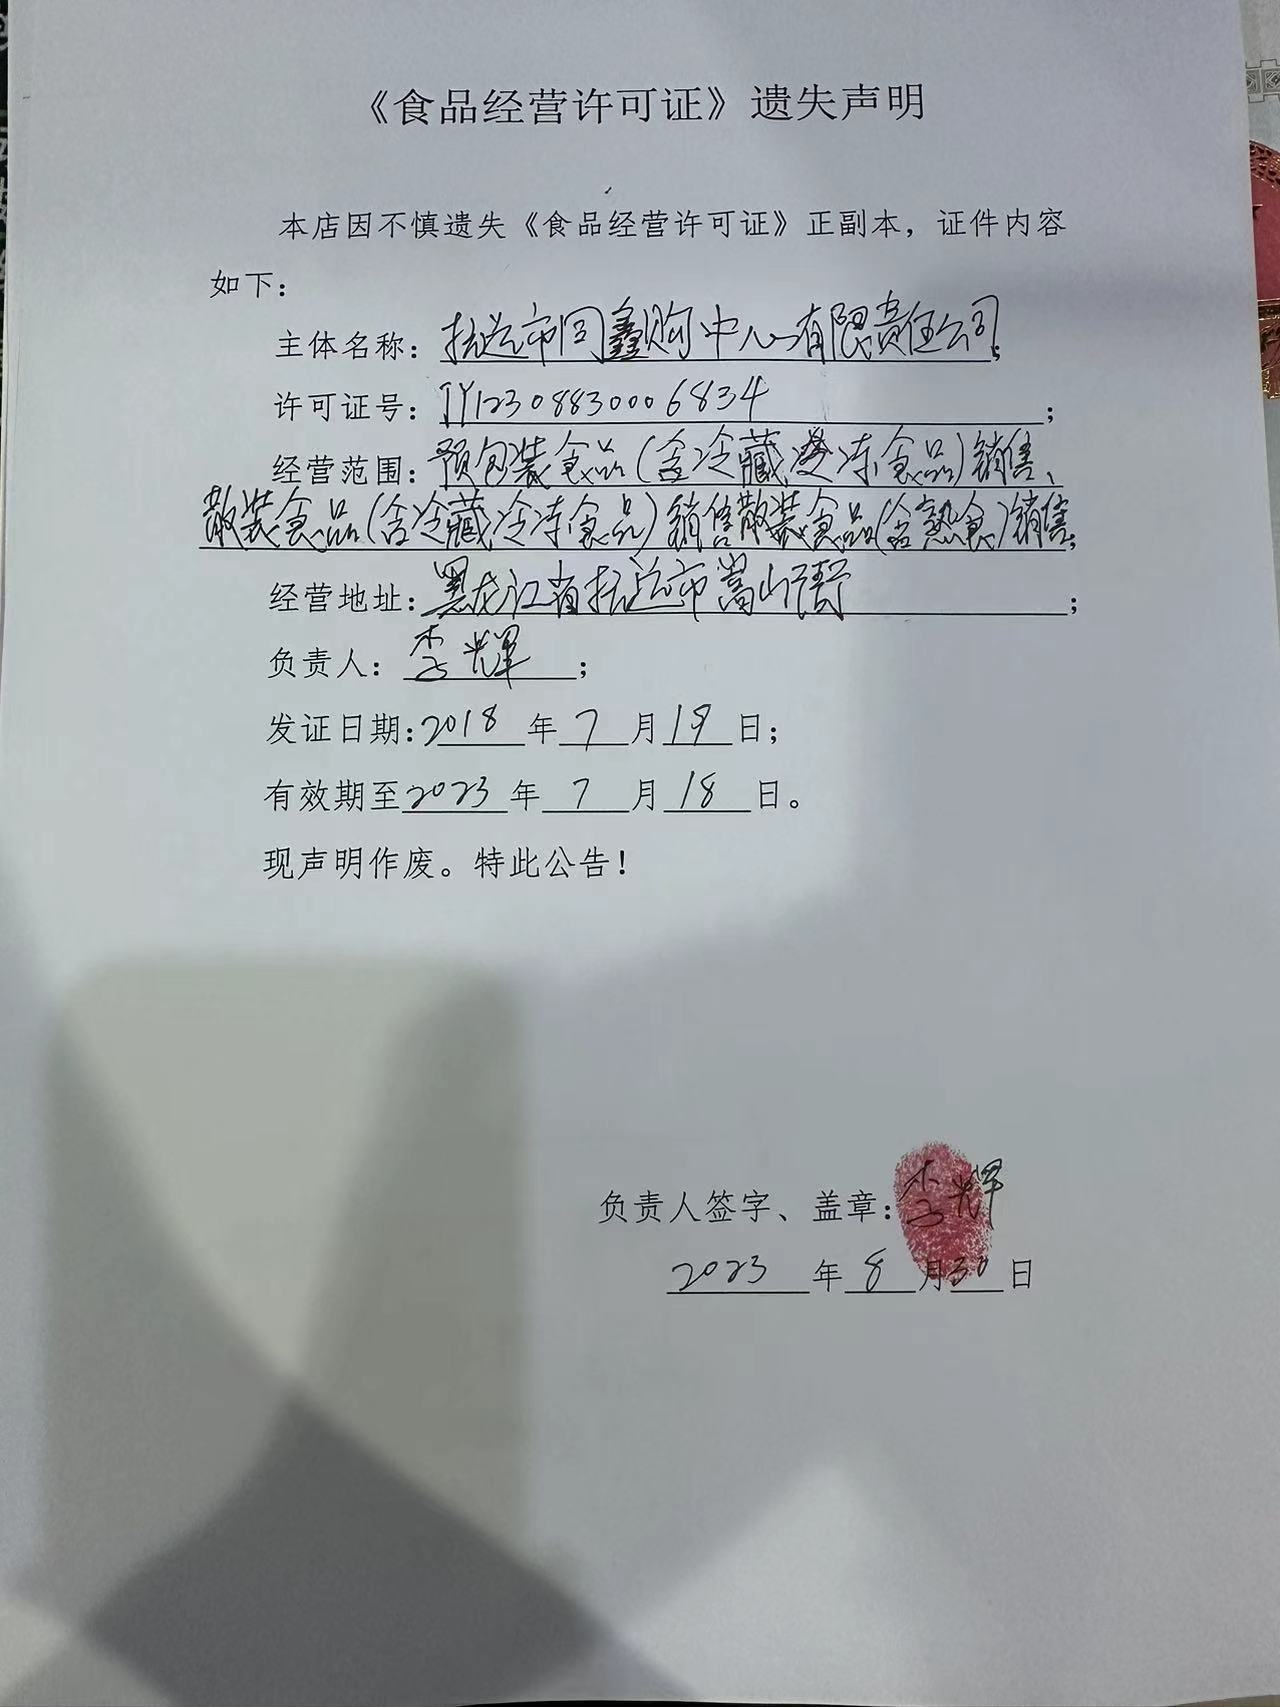 《食品经营许可证》遗失声明
本店因不慎遗失《食品经营许可证》正副本，证件内容
如下：
主体名称：抚远市同鑫购中心有限责任公司；
许可证号：JY12308830006834；
经营范围：预包装食品(含冷藏冷冻食品)销售、
散装食品(含冷藏冷冻食品)销售散装食品(含熟食)销售；
经营地址：黑龙江省抚远市嵩山街；
负责人：李辉；
发证日期：2018年7月19日；
有效期至2023年7月18日。
现声明作废。特此公告！
负责人签字、盖章：李辉
2023年8月30日